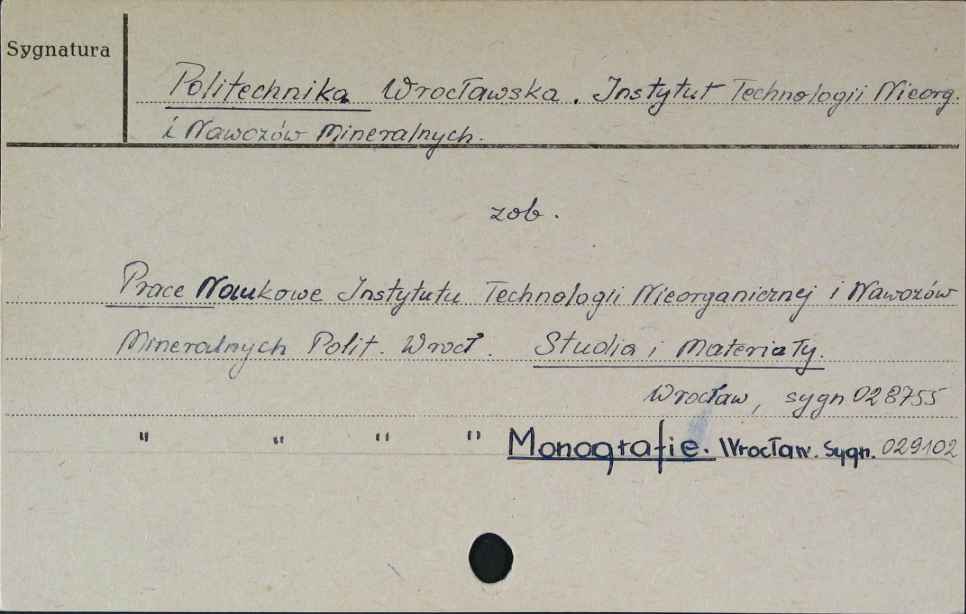 Sygnatura
Politechnika Wrocławska. Instytut Technologii Nieorg.
i Nawozów Mineralnych.
zob.
Prace Naukowe Instytutu Technologii Nieorganicznej i Nawozów
Mineralnych Polit. Wrocł. Studia i Materiały.
Wrocław, sygn 028755
" " " " Monografie. Wrocław. Sygn. 029102